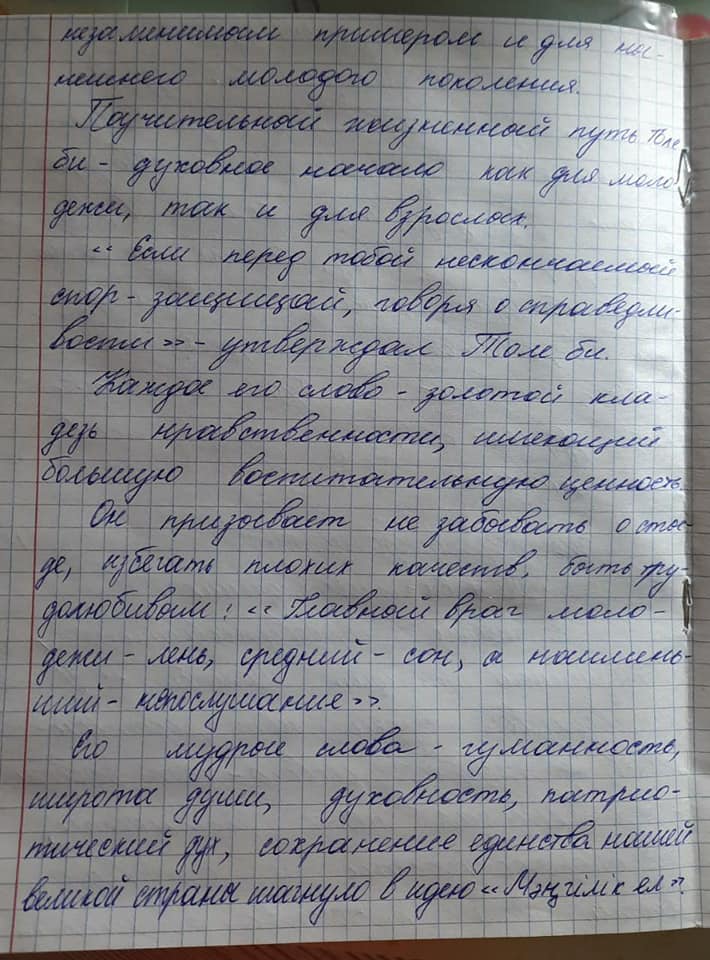 незаменимым примером и для ны-
нешнего молодого поколения.
Поучительный жизненный путь Толе
би - духовное начало как для моло
дежи, так и для взрослых.
"Если перед тобой нескончаемый
спор - защищай, говоря о справедли-
вости" - утверждал Толе би.
Каждое его слово - золотой кла-
дезь нравственности, имеющий
большую воспитательную ценность.
Он призывает не забывать о сты-
де, избегать плохих качеств, быть тру-
долюбивым: "Главный враг моло-
дежи - лень, средний - сон, а наимень-
ший - непослушание".
Его мудрые слова - гуманность,
широта души, духовность, патрио-
тический дух, сохранение единства нашей
великой страны шагнуло в идею "Мәңгілік ел".